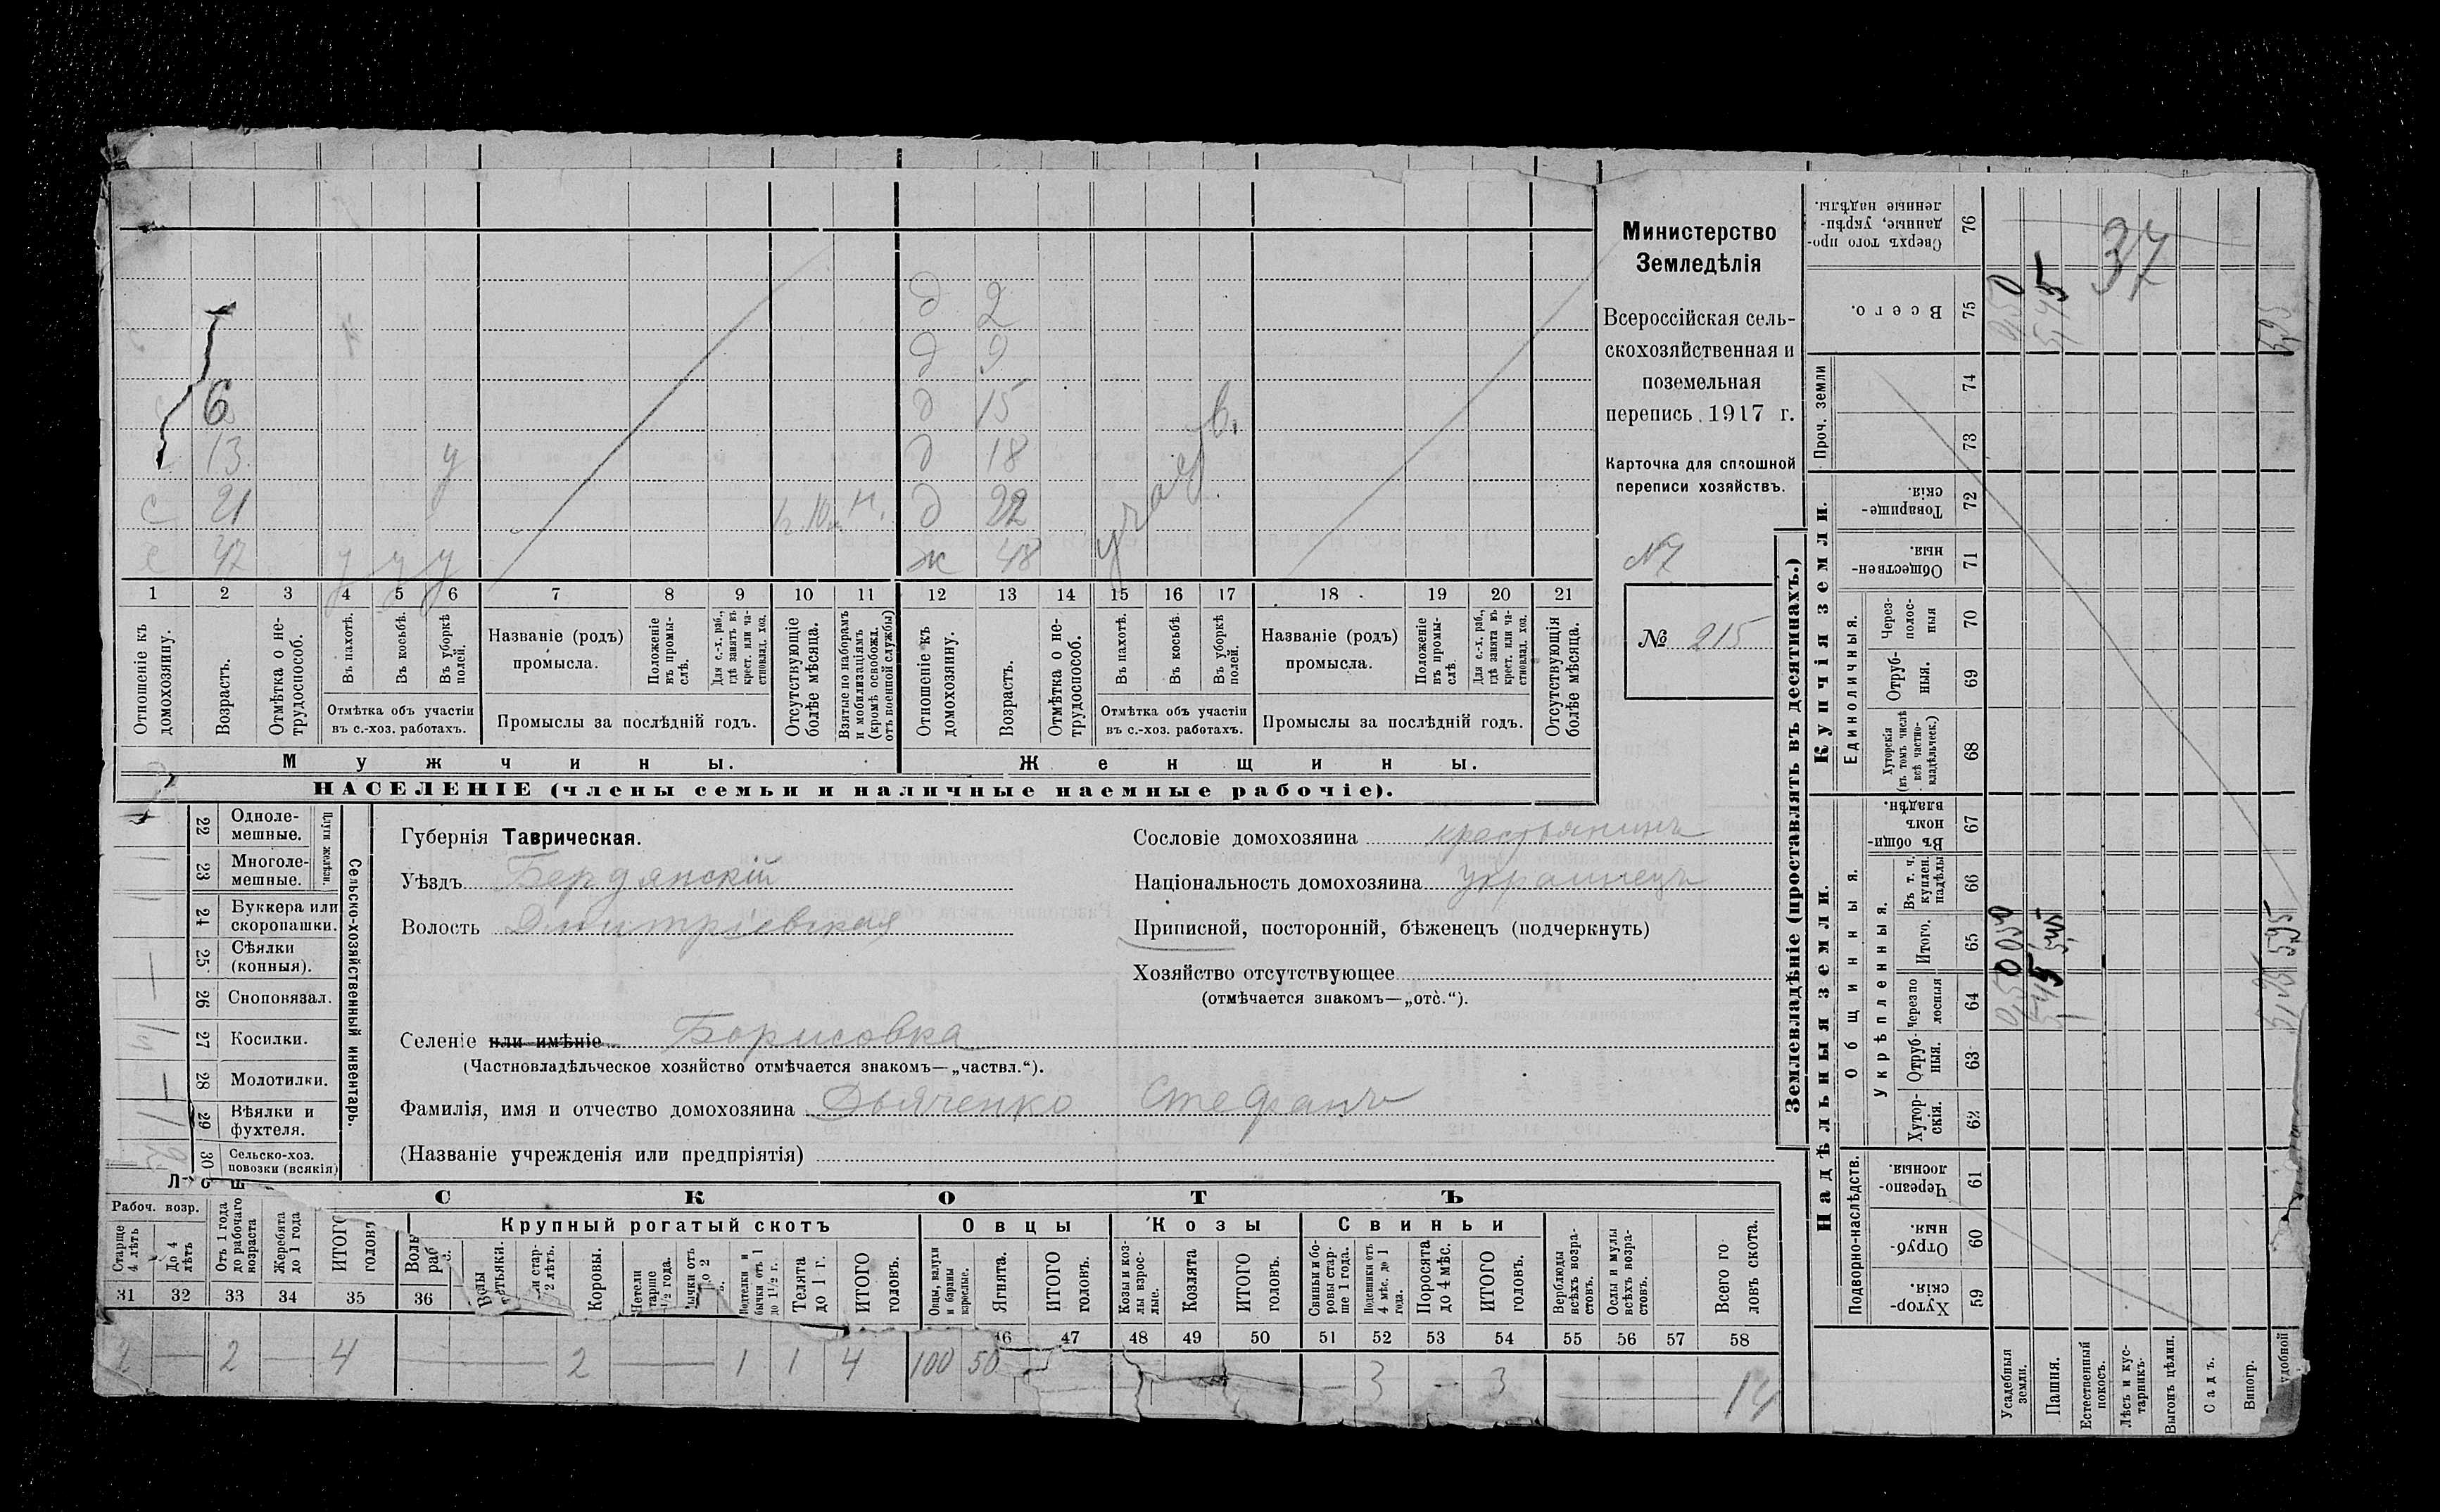 д 2
д 9
6 д 15
13 у д 18
с 21 д 22
с 47 у у у ж 48
1 2 3 4 5 6 7 8 9 10 11 12 13 14 15 16 17 18 19 20 21
Отношеніе къ домохозяину.
Возрастъ.
Отмѣтка о не-
трудоспособ.
Въ пахотѣ.
Въ косьбѣ.
Въ уборкѣ полей.
Отмѣтка объ участіи
въ с.-хоз. работахъ.
Названіе (родъ)
промысла.
Положеніе
въ промы-
слѣ.
Для с.-х. раб.,
гдѣ занятъ въ
крест. или ча-
стновлад. хоз.
Промыслы за послѣдній годъ.
Отсутствующіе
болѣе мѣсяца.
Взятые по наборамъ
и мобилизаціямъ
(кромѣ освобожд.
отъ военной службы)
Отношеніе къ
домохозяину.
Возрастъ.
Отмѣтка о не-
трудоспособ.
Въ пахотѣ.
Въ косьбѣ.
Въ уборкѣ
полей.
Отмѣтка объ участіи
въ с.-хоз. работахъ.
Названіе (родъ)
промысла.
Положеніе
въ промы-
слѣ.
Для с.-х. раб.,
гдѣ занята въ
крест. или ча-
стновлад. хоз.
Промыслы за послѣдній годъ.
Отсутствующія
болѣе мѣсяца.
Мужчины.
Женщины.
НАСЕЛЕНІЕ (члены семьи и наличные наемные рабочіе).
Министерство
Земледѣлія
Всероссійская сель-
скохозяйственная и
поземельная
перепись 1917 г.
Карточка для сплошной
переписи хозяйствъ.
№ 215
22 Одноле-
мешные.
23 Многоле-
мешные.
Плуги желѣзн.
24 Буккера или
скоропашки.
25 Сѣялки
(конныя).
26 Сноповязал.
27 Косилки.
28 Молотилки.
29 Вѣялки и
фухтеля.
30 Сельско-хоз.
повозки (всякія)
Сельско-хозяйственный инвентарь.
Губернія Таврическая.
Уѣздъ Бердянскій
Волость Дмитріевская
Селеніе или имѣніе Борисовка
(Частновладѣльческое хозяйство отмѣчается знакомъ—„частвл.“).
Фамилія, имя и отчество домохозяина Дьяченко Стефанъ
(Названіе учрежденія или предпріятія)
Сословіе домохозяина крестьянинъ
Національность домохозяина украинецъ
Приписной, посторонній, бѣженецъ (подчеркнуть)
Хозяйство отсутствующее
(отмѣчается знакомъ—„отс.“).
СКОТЪ
Рабоч. возр.
Старше
4 лѣтъ
До 4
лѣтъ
Отъ 1 года
до рабочаго
возраста
Жеребята
до 1 года
ИТОГО
головъ
Крупный рогатый скотъ
Коровы.
Подтелки и
бычки отъ 1
до 1½ г.
Телята
до 1 г.
ИТОГО
головъ.
Овцы
Овцы, валухи
и бараны
взрослые.
Ягнята.
ИТОГО
головъ.
Козы
Козы и коз-
лы взрос-
лые.
Козлята
ИТОГО
головъ.
Свиньи
Свиньи и бо-
ровы стар-
ше 1 года.
Подсвинки отъ
4 мѣс. до 1
года.
Поросята
до 4 мѣс.
ИТОГО
головъ.
Верблюды
всѣхъ возра-
стовъ.
Ослы и мулы
всѣхъ возра-
стовъ.
Всего го
ловъ скота.
31 32 33 34 35 36 47 48 49 50 51 52 53 54 55 56 57 58
2 — 2 — 4 — 2 — 1 1 4 100 50 — 3 — 3 — 14
Землевладѣніе (проставлять въ десятинахъ.)
Купчія земли.
Надѣльныя земли.
Сверхъ того про-
данные, укрѣп-
ленные надѣлы.
76
37
Всего.
75
Проч. земли
74
73
Товарище-
скія.
72
Обществен-
ныя.
71
Единоличныя.
Через-
полос-
ныя
70
Отруб-
ныя.
69
Хуторскія
(въ томъ числѣ
всѣ частно-
владѣльческ.)
68
Общинныя.
Въ общи
номъ
владѣн.
67
Укрѣпленныя.
Въ т. ч.
куплен.
надѣлы
66
Итого.
65
Черезпо
лосныя
64
Отруб-
ныя.
63
Хутор-
скія.
62
Подворно-наслѣдств.
Черезпо-
лосныя.
61
Отруб-
ныя.
60
Хутор-
скія.
59
Усадебныя
земли.
Пашня.
Естественный
покосъ.
Лѣсъ и кус-
тарникъ.
Выгонъ цѣлин.
Садъ.
Виногр.